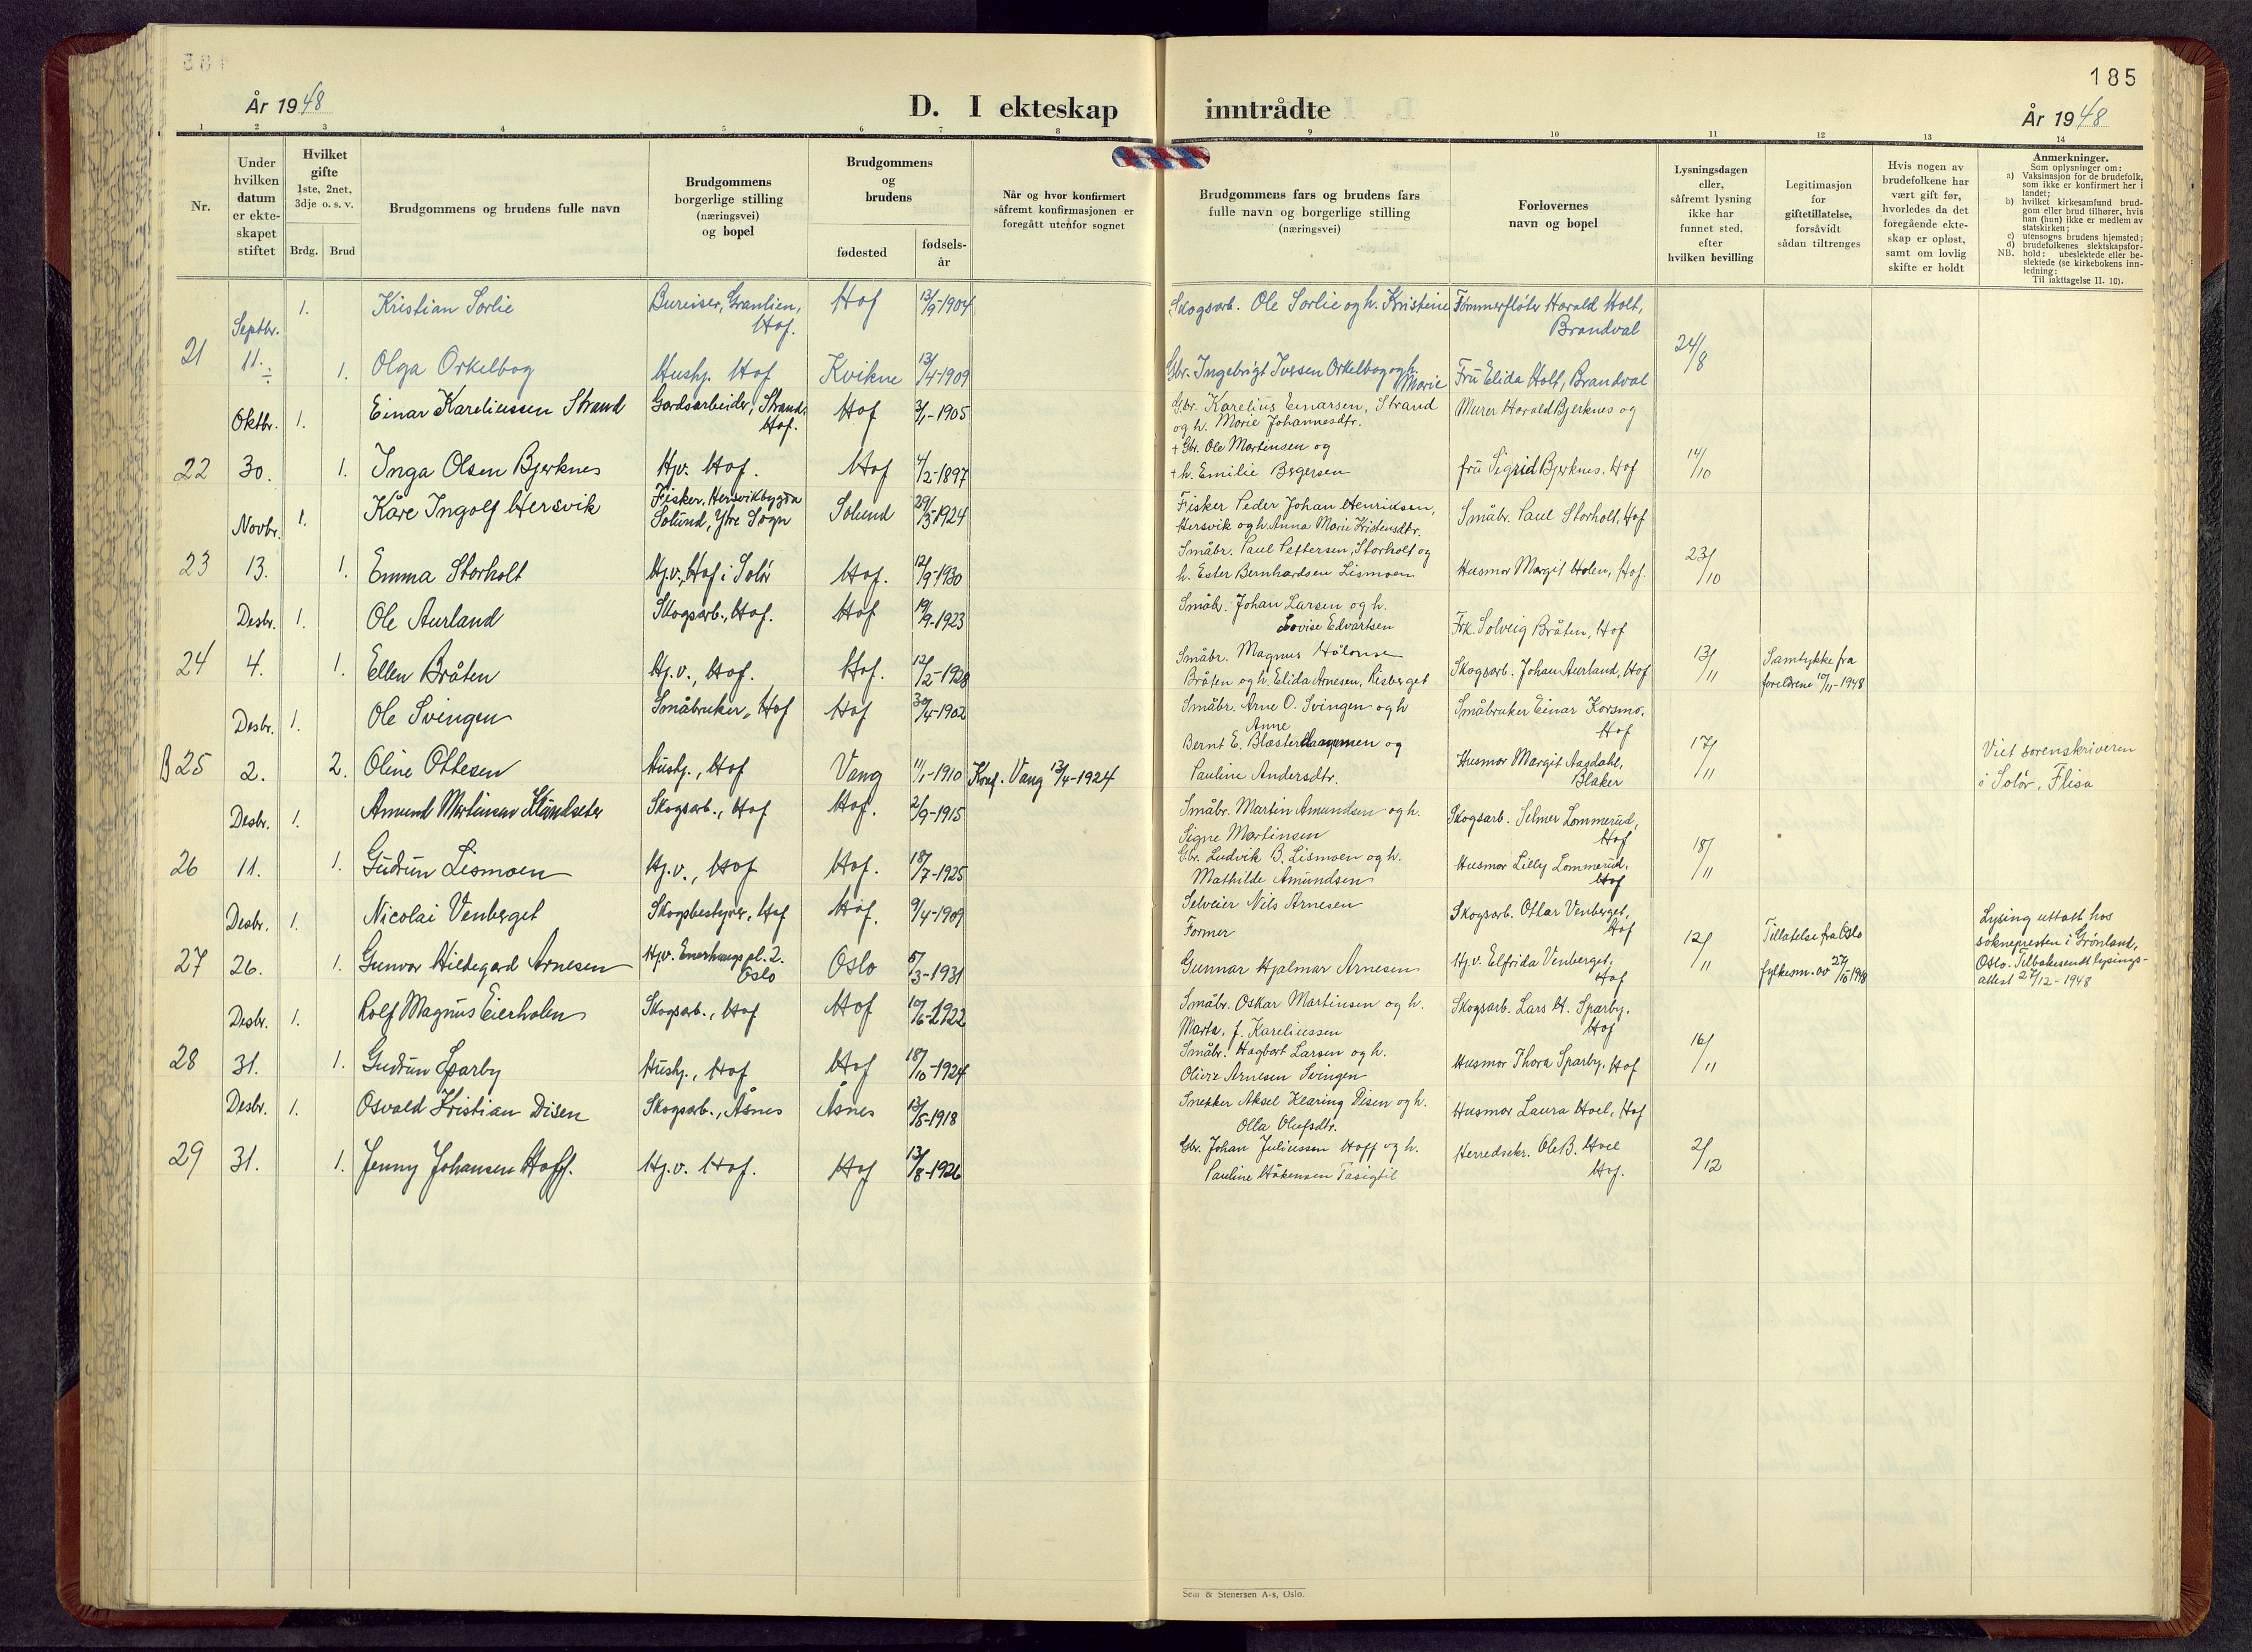 185
År 1948
D. I ekteskap inntrådte
År 1948
1 2 3 4 5 6 7 8 9 10 11 12 13 14
Nr.
Under
hvilken
datum
er ekte-
skapet
stiftet
Hvilket
gifte
1ste, 2net,
3dje o. s. v.
Brdg. Brud
Brudgommens og brudens fulle navn
Brudgommens
borgerlige stilling
(næringsvei)
og bopel
Brudgommens
og
brudens
fødested
fødsels-
år
Når og hvor konfirmert
såfremt konfirmasjonen er
foregått utenfor sognet
Brudgommens fars og brudens fars
fulle navn og borgerlige stilling
(næringsvei)
Forlovernes
navn og bopel
Lysningsdagen
eller,
såfremt lysning
ikke har
funnet sted,
efter
hvilken bevilling
Legitimasjon
for
giftetillatelse,
forsåvidt
sådan tiltrenges
Hvis nogen av
brudefolkene har
vært gift før,
hvorledes da det
foregående ekte-
skap er opløst,
samt om lovlig
skifte er holdt
Anmerkninger.
Som oplysninger om:
a) Vaksinasjon for de brudefolk,
som ikke er konfirmert her i
landet;
b) hvilket kirkesamfund brud-
gom eller brud tilhører, hvis
han (hun) ikke er medlem av
statskirken;
c) utensogns brudens hjemsted;
d) brudefolkenes slektskapsfor-
hold: ubeslektede eller be-
slektede (se kirkebokens inn-
ledning;
NB. Til iakttagelse II. 10).
21
Septbr.
11.
1. Kristian Sorlie
Bureiser, Granlien,
Hof.
Hof 13/9-1904
Skogsarb. Ole Sorlie og h. Kristine
Tømmerfløter Harald Holt,
Brandval
24/8
1. Olga Orkelbog
Hushj. Hof Kvikne 13/4-1909
Gbr. Ingebrigt Iversen Orkelbog og h.
Marie
Fru Elida Holt, Brandval
22
Oktbr.
30.
1. Einar Kareliussen Strand
Gardsarbeider, Strand,
Hof.
Hof 3/1-1905
Gbr. Karelius Einarsen, Strand
og h. Marie Johannesdtr.
Murer Harald Bjerknes og
1. Inga Olsen Bjerknes
Hjv. Hof. Hof 4/2-1897
+ Gbr. Ole Martinsen og
+ h. Emilie Børgersen
fru Sigrid Bjerknes, Hof
14/10
23
Novbr.
13.
1. Kåre Ingolf Hersvik
Fisker, Hersvikbygda
Solund, Ytre Sogn
Solund 29/3-1924
Fisker Peder Johan Henriksen,
Hersvik og h. Anna Marie Kristensdtr.
Småbr. Paul Storholt, Hof
1. Emma Storholt
Hj.v., Hof i Solør
Hof. 12/9-1930
Småbr. Paul Pettersen, Storholt og
h. Ester Bernhardsen Lismoen
Husmor Margit Holen, Hof.
23/10
24
Desbr.
4.
1. Ole Aurland
Skogsarb., Hof.
Hof 19/9-1923
Småbr. Johan Larsen og h.
Lovise Edvartsen
Frk. Solveig Bråten, Hof
1. Ellen Bråten
Hj.v., Hof.
Hof. 12/2-1928
Småbr. Magnus Hålonsen
Bråten og h. Elida Arnesen, Risberget
Skogsarb. Johan Aurland, Hof
13/11
Samtykke fra
foreldrene 10/11-1948
B 25
Desbr.
2.
1. Ole Svingen
Småbruker, Hof
Hof 30/4-1902
Småbr. Arne O. Svingen og h
Anne
Småbruker Einar Korsmo,
Hof
2. Oline Ottesen
Hushj., Hof
Vang 11/1-1910 Konf. Vang 13/4-1924
Bernt E. og
Pauline Andersdtr.
Husmor Margit Aasdahl,
Blaker
17/11
Viet sorenskriveren
i Solør, Flisa
26
Desbr.
11.
1. Amund Martinsen
Skogsarb., Hof
Hof. 2/9-1915
Småbr. Martin Amundsen og h.
Signe Martinsen
Skogsarb. Selmer Lommerud,
Hof
1. Gudrun Lismoen
Hj.v., Hof
Hof. 18/7-1925
Gbr. Ludvik B. Lismoen og h.
Mathilde Amundsen
Husmor Lilly Lommerud,
Hof
18/11
27
Desbr.
26.
1. Nicolai Venberget
Skogsbestyrer, Hof
Hof. 9/4-1909
Selveier Nils Arnesen
Skogsarb. Ottar Venberget,
Hof
1. Gunvor Hildegard Arnesen
Hjv. Enerhaugs pl. 2.
Oslo
Oslo 5/3-1931
Former
Gunnar Hjalmar Arnesen
Hj.v. Elfrida Venberget,
Hof
12/11
Tillatelse fra Oslo
fylkesm. av 27/10 1948
Lysing uttatt hos
soknepresten i Grønland,
Oslo. Tilbakesendt lysings-
attest 27/12-1948
28
Desbr.
31.
1. Rolf Magnus Eierholen
Skogsarb., Hof
Hof 10/6-1922
Småbr. Oskar Martinsen og h.
Marta, f. Kareliussen
Skogsarb. Lars H. Sparby,
Hof
1. Gudrun Sparby
Hushj., Hof
Hof 18/10-1924
Småbr. Hagbart Larsen og h.
Olivie Arnesen Svingen
Husmor Thora Sparby, Hof
16/11
29
Desbr.
31.
1. Osvald Kristian Disen
Skogsarb., Åsnes
Åsnes 13/5-1918
Snekker Aksel Klaring Disen og h.
Olla Olufsdtr.
Husmor Laura Hoel, Hof
1. Jenny Johansen Hoff.
Hj.v. Hof.
Hof 13/8-1926
Gbr. Johan Juliussen Hoff og h.
Pauline Håkensen
Herredsekr. Ole B. Hoel
Hof.
2/12
Sem & Stenersen A-s, Oslo.